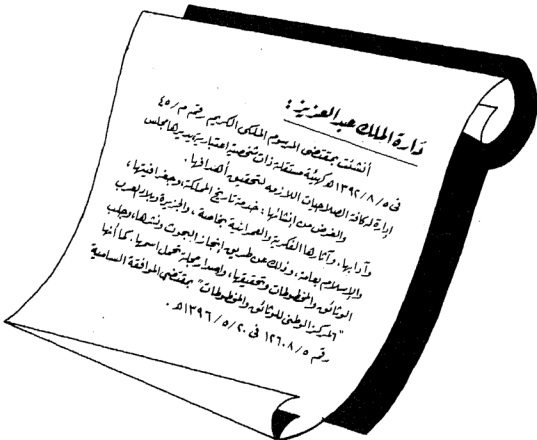 دارة الملك عبد العزيز :
أنشئت بمقتضى المرسوم الملكى الكريم رقم م/٤٥
فى ١٣٩٢/٨/٥هـ كهيئة مستقلة ذات شخصية اعتبارية يديرها مجلس
إدارة له كافة الصلاحيات اللازمة لتحقيق أهدافها .
والغرض من إنشائها : خدمة تاريخ المملكة وجغرافيتها ،
وآدابها ، وآثارها الفكرية والعمرانية بخاصة ، والجزيرة وبلاد العرب
والإسلام بعامة ، وذلك عن طريق إنجاز البحوث ونشرها ، وجلب
الوثائق والمخطوطات وتحقيقها ، وإصدار مجلة تحمل اسمها ، كما أنها
"المركز الوطنى للوثائق والمخطوطات" بمقتضى الموافقة السامية
رقم ١٢٦٠٨/٥ فى ١٣٩٦/٥/٢٠هـ .